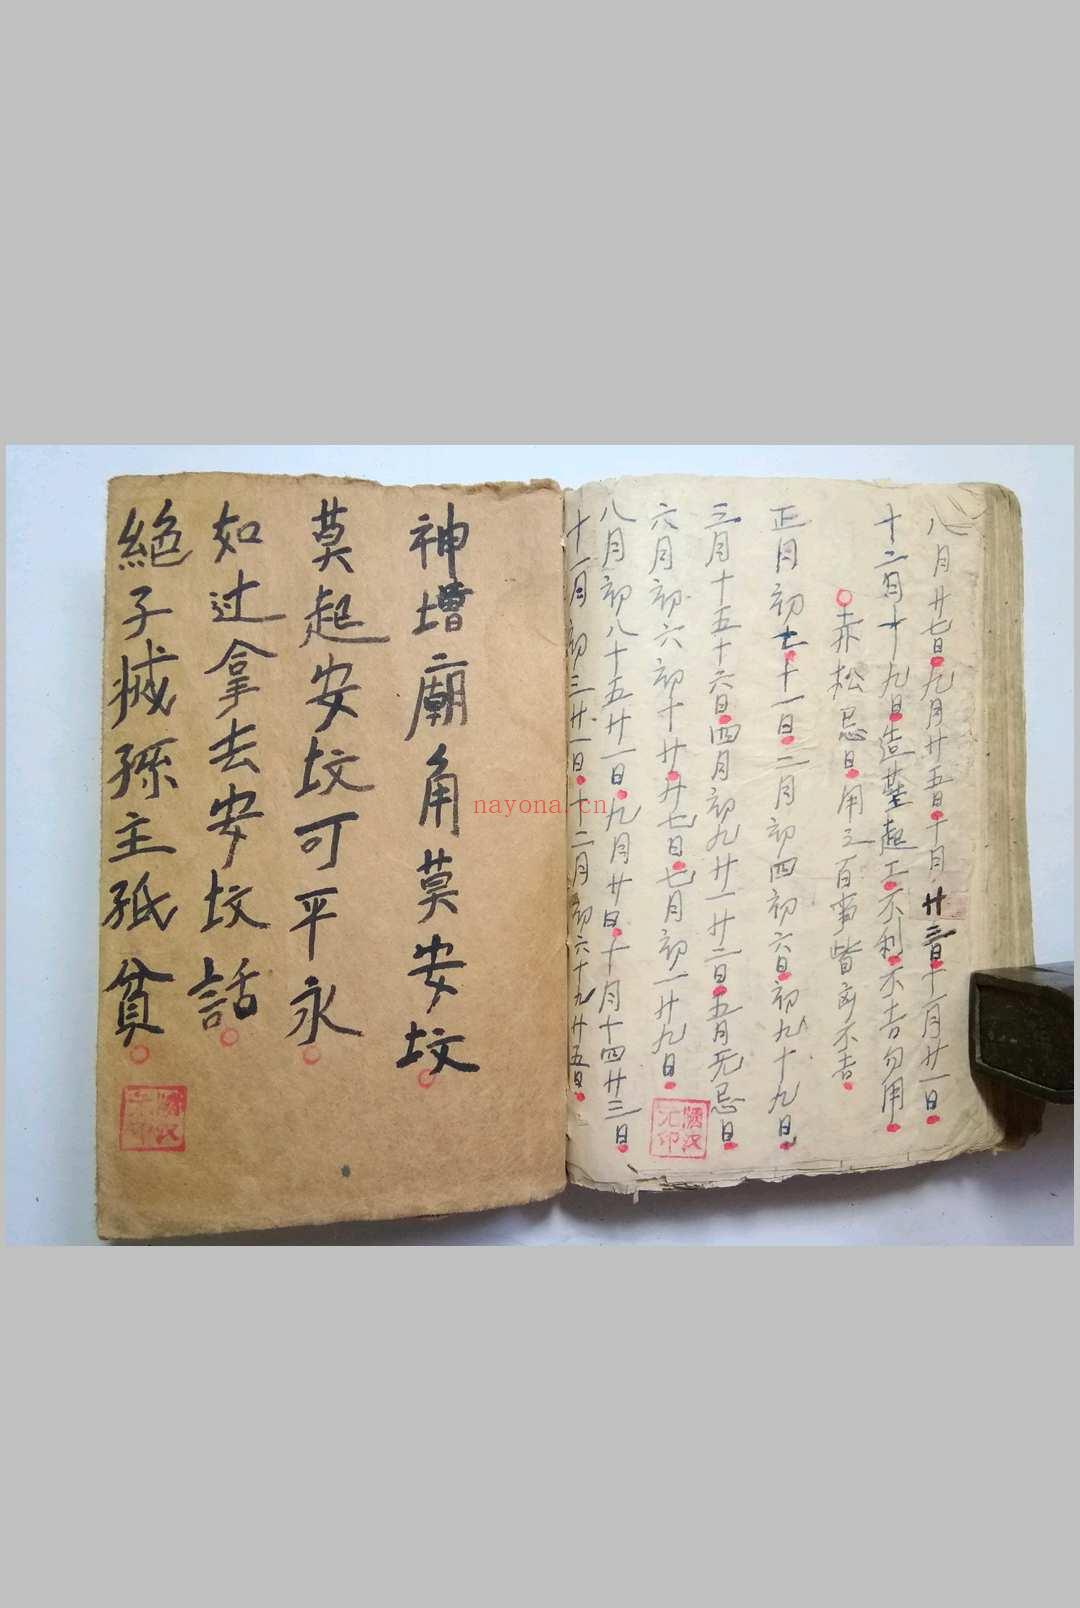 八月廿七日九月廿五日十月廿三日十一月廿一日
十二月十九日造葬起工不利不吉勿用
赤松忌日用之百事皆凶不吉
正月初七十一日二月初四初六日初九十九日
三月十五十六日四月初九廿一廿二日五月无忌日
六月初六初十廿廿七日七月初一廿九日
八月初八十五廿一日九月廿日十月十四廿三日
十一月初三廿一日十二月初六十九廿五日
神墰廟角莫安坟
莫起安坟可平永
如过拿去安坟話
絕子搣孫主孤貧
nayona.cn